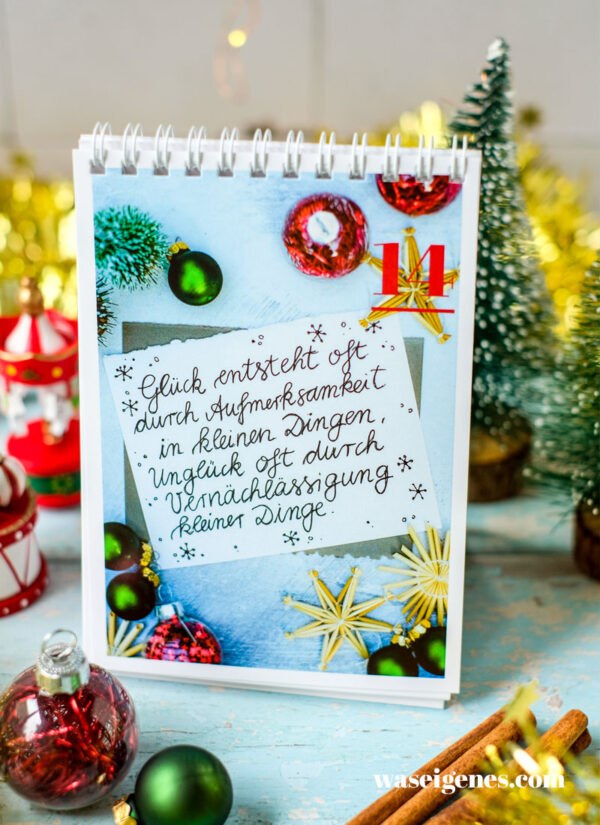 14
Glück entsteht oft
durch Aufmerksamkeit
in kleinen Dingen,
Unglück oft durch
Vernächlässigung
kleiner Dinge.
waseigenes.com